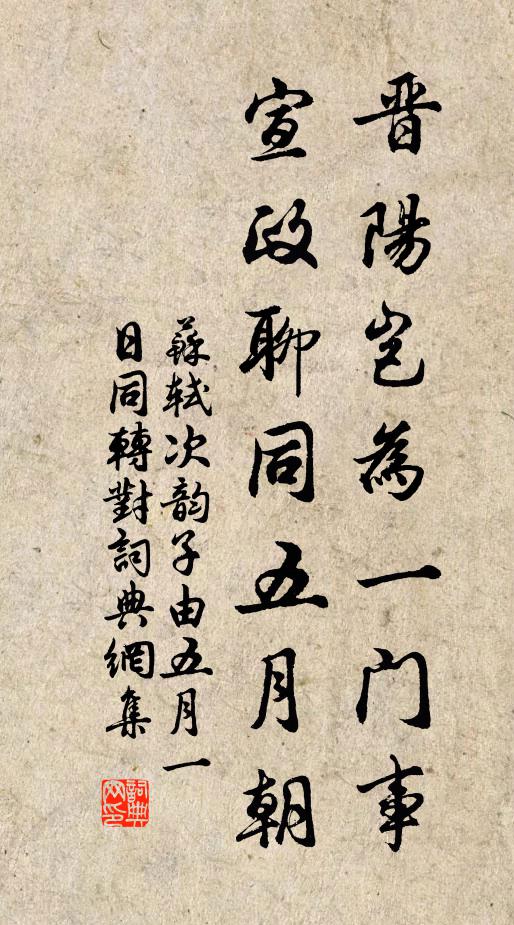 晋陽豈為一門事
宣政聊同五月朝
蘇軾次韵子由五月一
日同轉對詞典網集
詞典網印